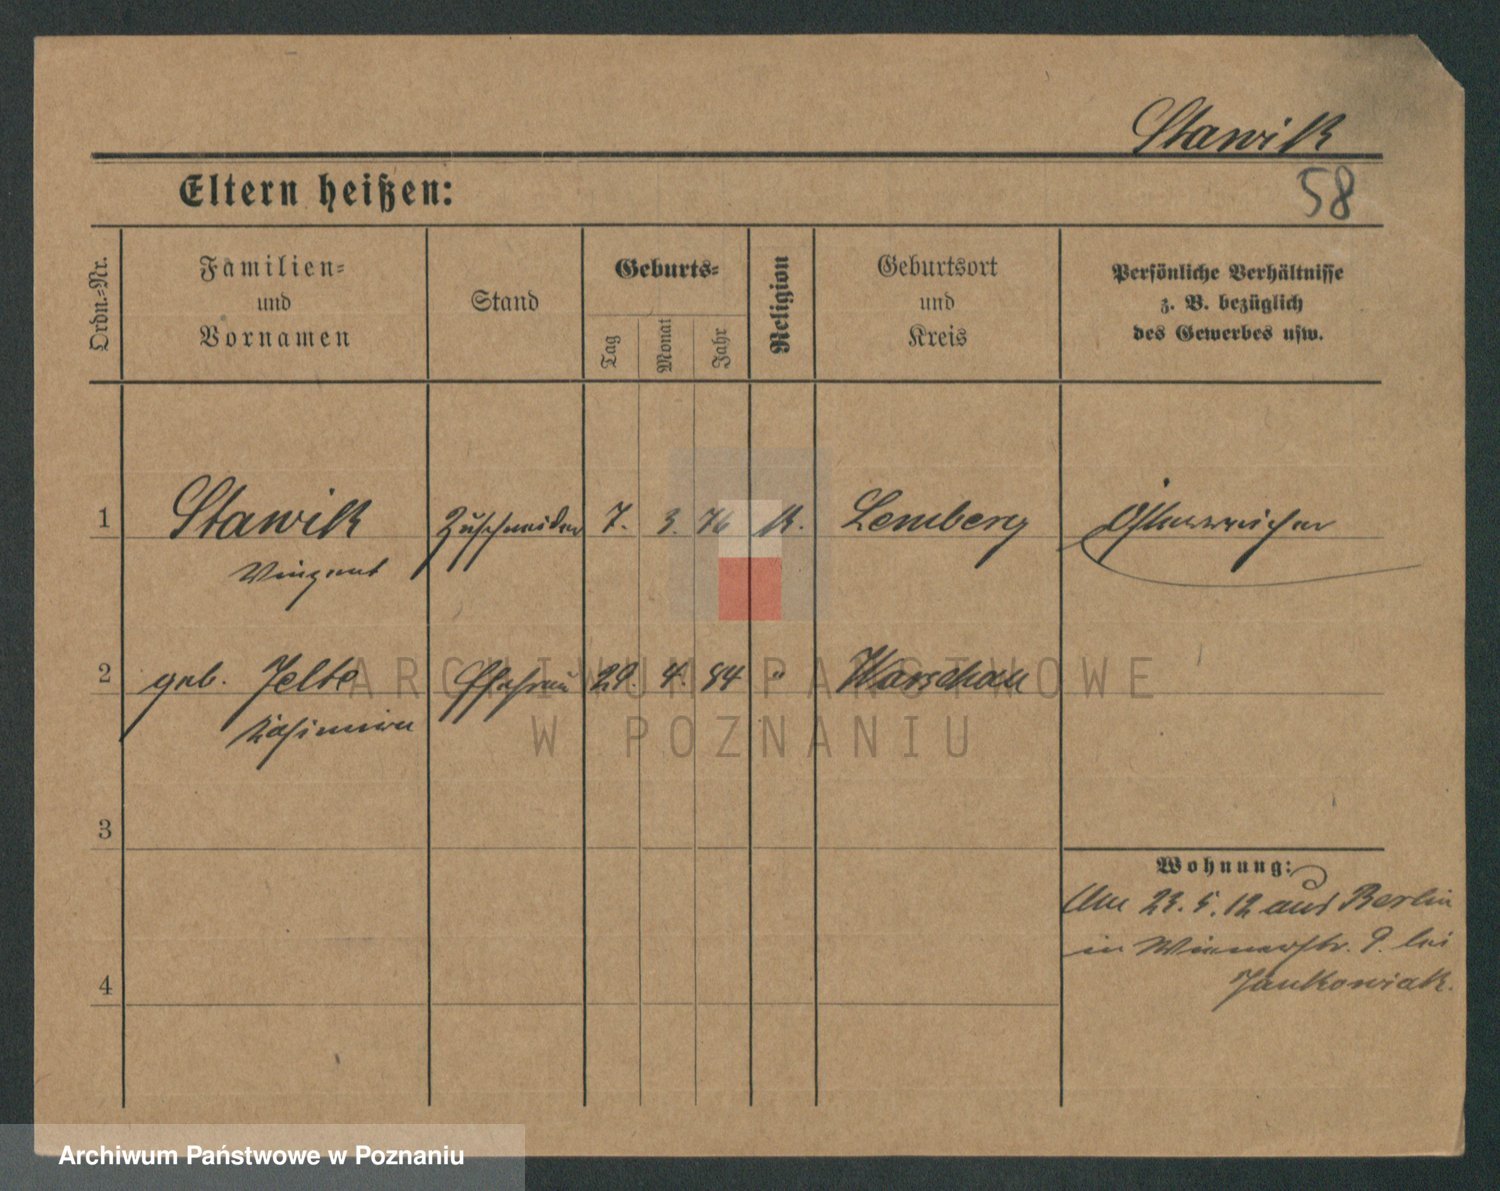 Stawik
Eltern heißen:
58
Ordn.-Nr.
Familien-
und
Vornamen
Stand
Geburts-
Tag
Monat
Jahr
Religion
Geburtsort
und
Kreis
Persönliche Verhältnisse
z. B. bezüglich
des Gewerbes usw.
1 Stawik Zuschneider 7. 3. 76 K. Lemberg Österreicher
Vinzent
2 geb. Jelte Ehefrau 29. 4. 84 " Warschau
Kasimira
ARCHIWUM PAŃSTWOWE
W POZNANIU
3
Wohnung:
Am 23. 5. 12 aus Berlin
in Wienerstr. 9. bei
Jankowiak.
4
Archiwum Państwowe w Poznaniu